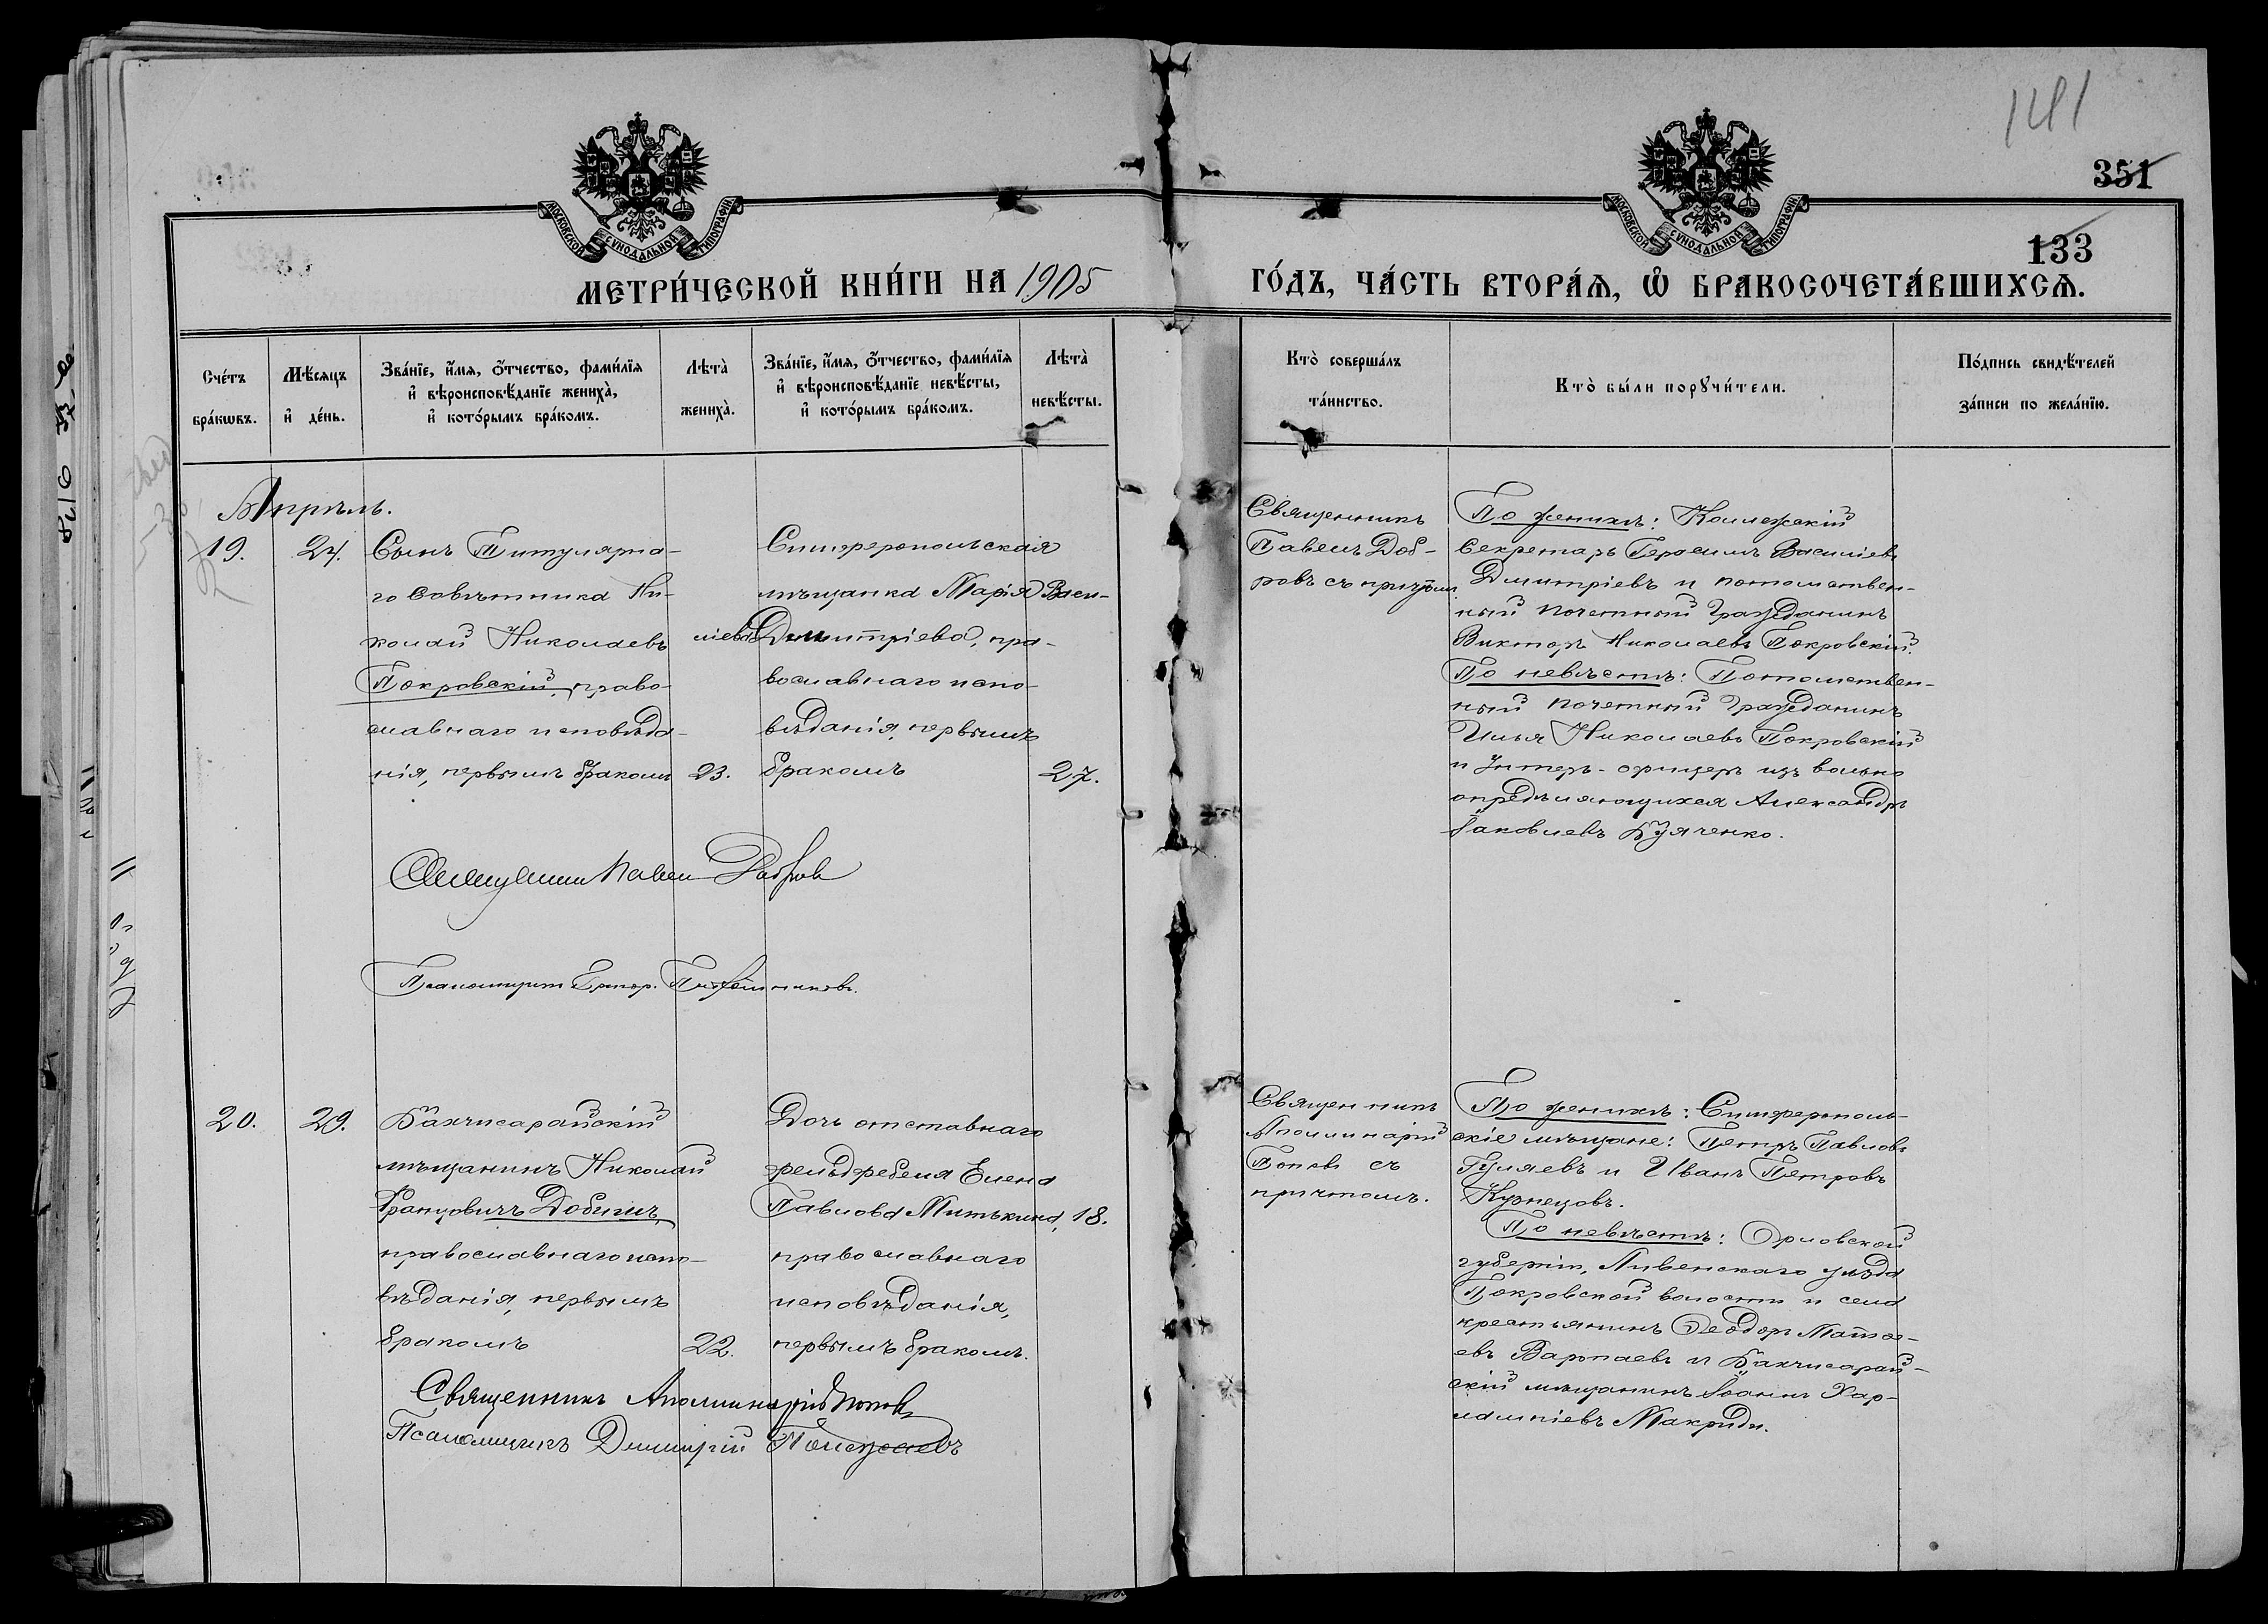 141
351
133
МОСКОВСКОЙ СѴНОДАЛЬНОЙ ТИПОГРАФІИ
МОСКОВСКОЙ СѴНОДАЛЬНОЙ ТИПОГРАФІИ
МЕТРИ́ЧЕСКОЙ КНИ́ГИ НА 1905
ГО́ДЪ, ЧА́СТЬ ВТОРА́Ѧ, Ѡ҆ БРАКОСОЧЕТА́ВШИХСѦ.
Сче́тъ
бра́кѡвъ.
Мѣ́сяцъ
и҆ де́нь.
Зва́нїе, и҆́мя, ѻ҆́тчество, фами́лїя
и҆ вѣроисповѣ́данїе жениха̀,
и҆ кото́рымъ бра́комъ.
Лѣта̀
жениха̀.
Зва́нїе, и҆́мя, ѻ҆́тчество, фами́лїя
и҆ вѣроисповѣ́данїе невѣ́сты,
и҆ кото́рымъ бра́комъ.
Лѣта̀
невѣ́сты.
Кто̀ соверша́лъ
та́инство.
Кто̀ бы́ли порꙋчи́тели.
По́дпись свидѣ́телей
за́писи по жела́нїю.
Апрѣль.
19.
24.
Сынъ Титулярна-
го Совѣтника Ни-
колай Николаевъ
Покровскій, право-
славнаго исповѣда-
нія, первымъ бракомъ
23.
Симферопольская
мѣщанка Марія Васи-
ліева Димитріева, пра-
вославнаго испо-
вѣданія, первымъ
бракомъ
27.
Священникъ
Павелъ Доб-
ровъ съ причтом.
По женихѣ: Коллежскій
Секретарь Герасимъ Василіевъ
Димитріевъ и потомствен-
ный почетный гражданинъ
Викторъ Николаевъ Покровскій.
По невѣстѣ: Потомствен-
ный почетный гражданинъ
Илья Николаевъ Покровскій
и Унтеръ-офицеръ изъ вольно
опредѣляющихся Александръ
Іаковлевъ Куяченко.
Священникъ Павелъ Добровъ
Псаломщикъ
20.
29.
Бахчисарайскій
мѣщанинъ Николай
Францовичъ Добишъ,
православнаго испо-
вѣданія, первымъ
бракомъ
22.
Дочь отставнаго
фельдфебеля Елена
Павлова Митькина,
православнаго
исповѣданія,
первымъ бракомъ.
18.
Священникъ
Аполлинарій
Поповъ съ
причтомъ.
По женихѣ: Симферополь-
скіе мѣщане: Петръ Павловъ
Гуляевъ и Иванъ Петровъ
Кузнецовъ.
По невѣстѣ: Орловской
губерніи, Ливенскаго уѣзда
Покровской волости и села
крестьянинъ Ѳеодоръ Матѳе-
евъ Варпаевъ и Бахчисарай-
скій мѣщанинъ Іоаннъ Хар-
лампіевъ Макриди.
Священникъ Аполлинарій Поповъ
Псаломщикъ Димитрій Полежаевъ